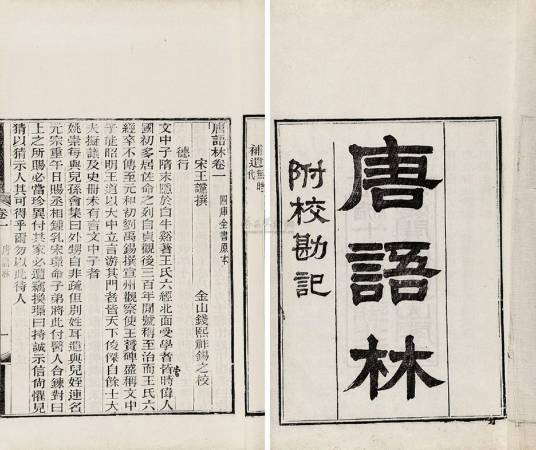 唐語林
附校勘記
補遺無時代
唐語林卷一 四庫全書原本
宋王讜撰 金山錢熙祚錫之校
德行
文中子隋末隱於白牛谿著王氏六經北面受學者皆時偉人
國初多居佐命之列自貞觀後三百年間號稱至治而王氏六
經卒不傳至元和初劉禹錫撰宣州觀察使王贊碑盛稱文中
子能昭明王道以大中立言游其門者皆天下俊傑自餘士大
夫擬議及史冊未有言文中子者
姚崇每與兒孫會集曰外甥自非疏但別姓耳遣與兒姪連名
元宗重午日賜丞相鍾乳宋璟命子弟將此付醫人合鍊對曰
上之所賜必當珍異付其家必遭竊換璟曰持誠示信尚懼見
猜以猜示人其可得乎爾勿以此待人
卷一
唐語林